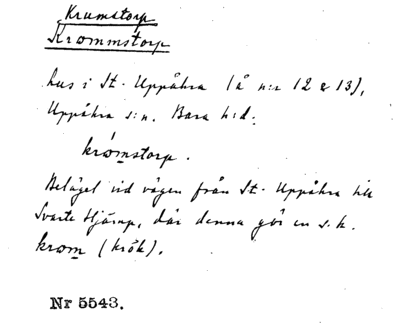 Krumstorp
Krommstorp
hus i St. Uppåkra (å n:r 12 & 13),
Uppåkra s:n. Bara h:d.
kromstorp.
Beläget vid vägen från St. Uppåkra till
Svarte Hjärup, där denna gör en s.k.
krom (krök).
Nr 5543.